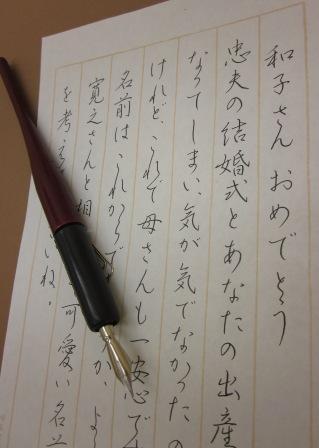 和子さん おめでとう
忠夫の結婚式とあなたの出産
なってしまい、気が気でなかったの
けれど、これで母さんも一安心で
名前はこれからで か、よ
寛之さんと相 可愛い名前
を考え いね。